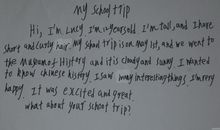 My School trip
Hi, I'm Lucy. I'm 12 years old. I'm tall, and I have
short and curly hair. My school trip is on May 1st, and we went to
the Museum of History and it's cloudy and sunny. I wanted
to know chinese history, I saw many interesting things, I'm very
happy. It was excited and great.
what about your school trip?